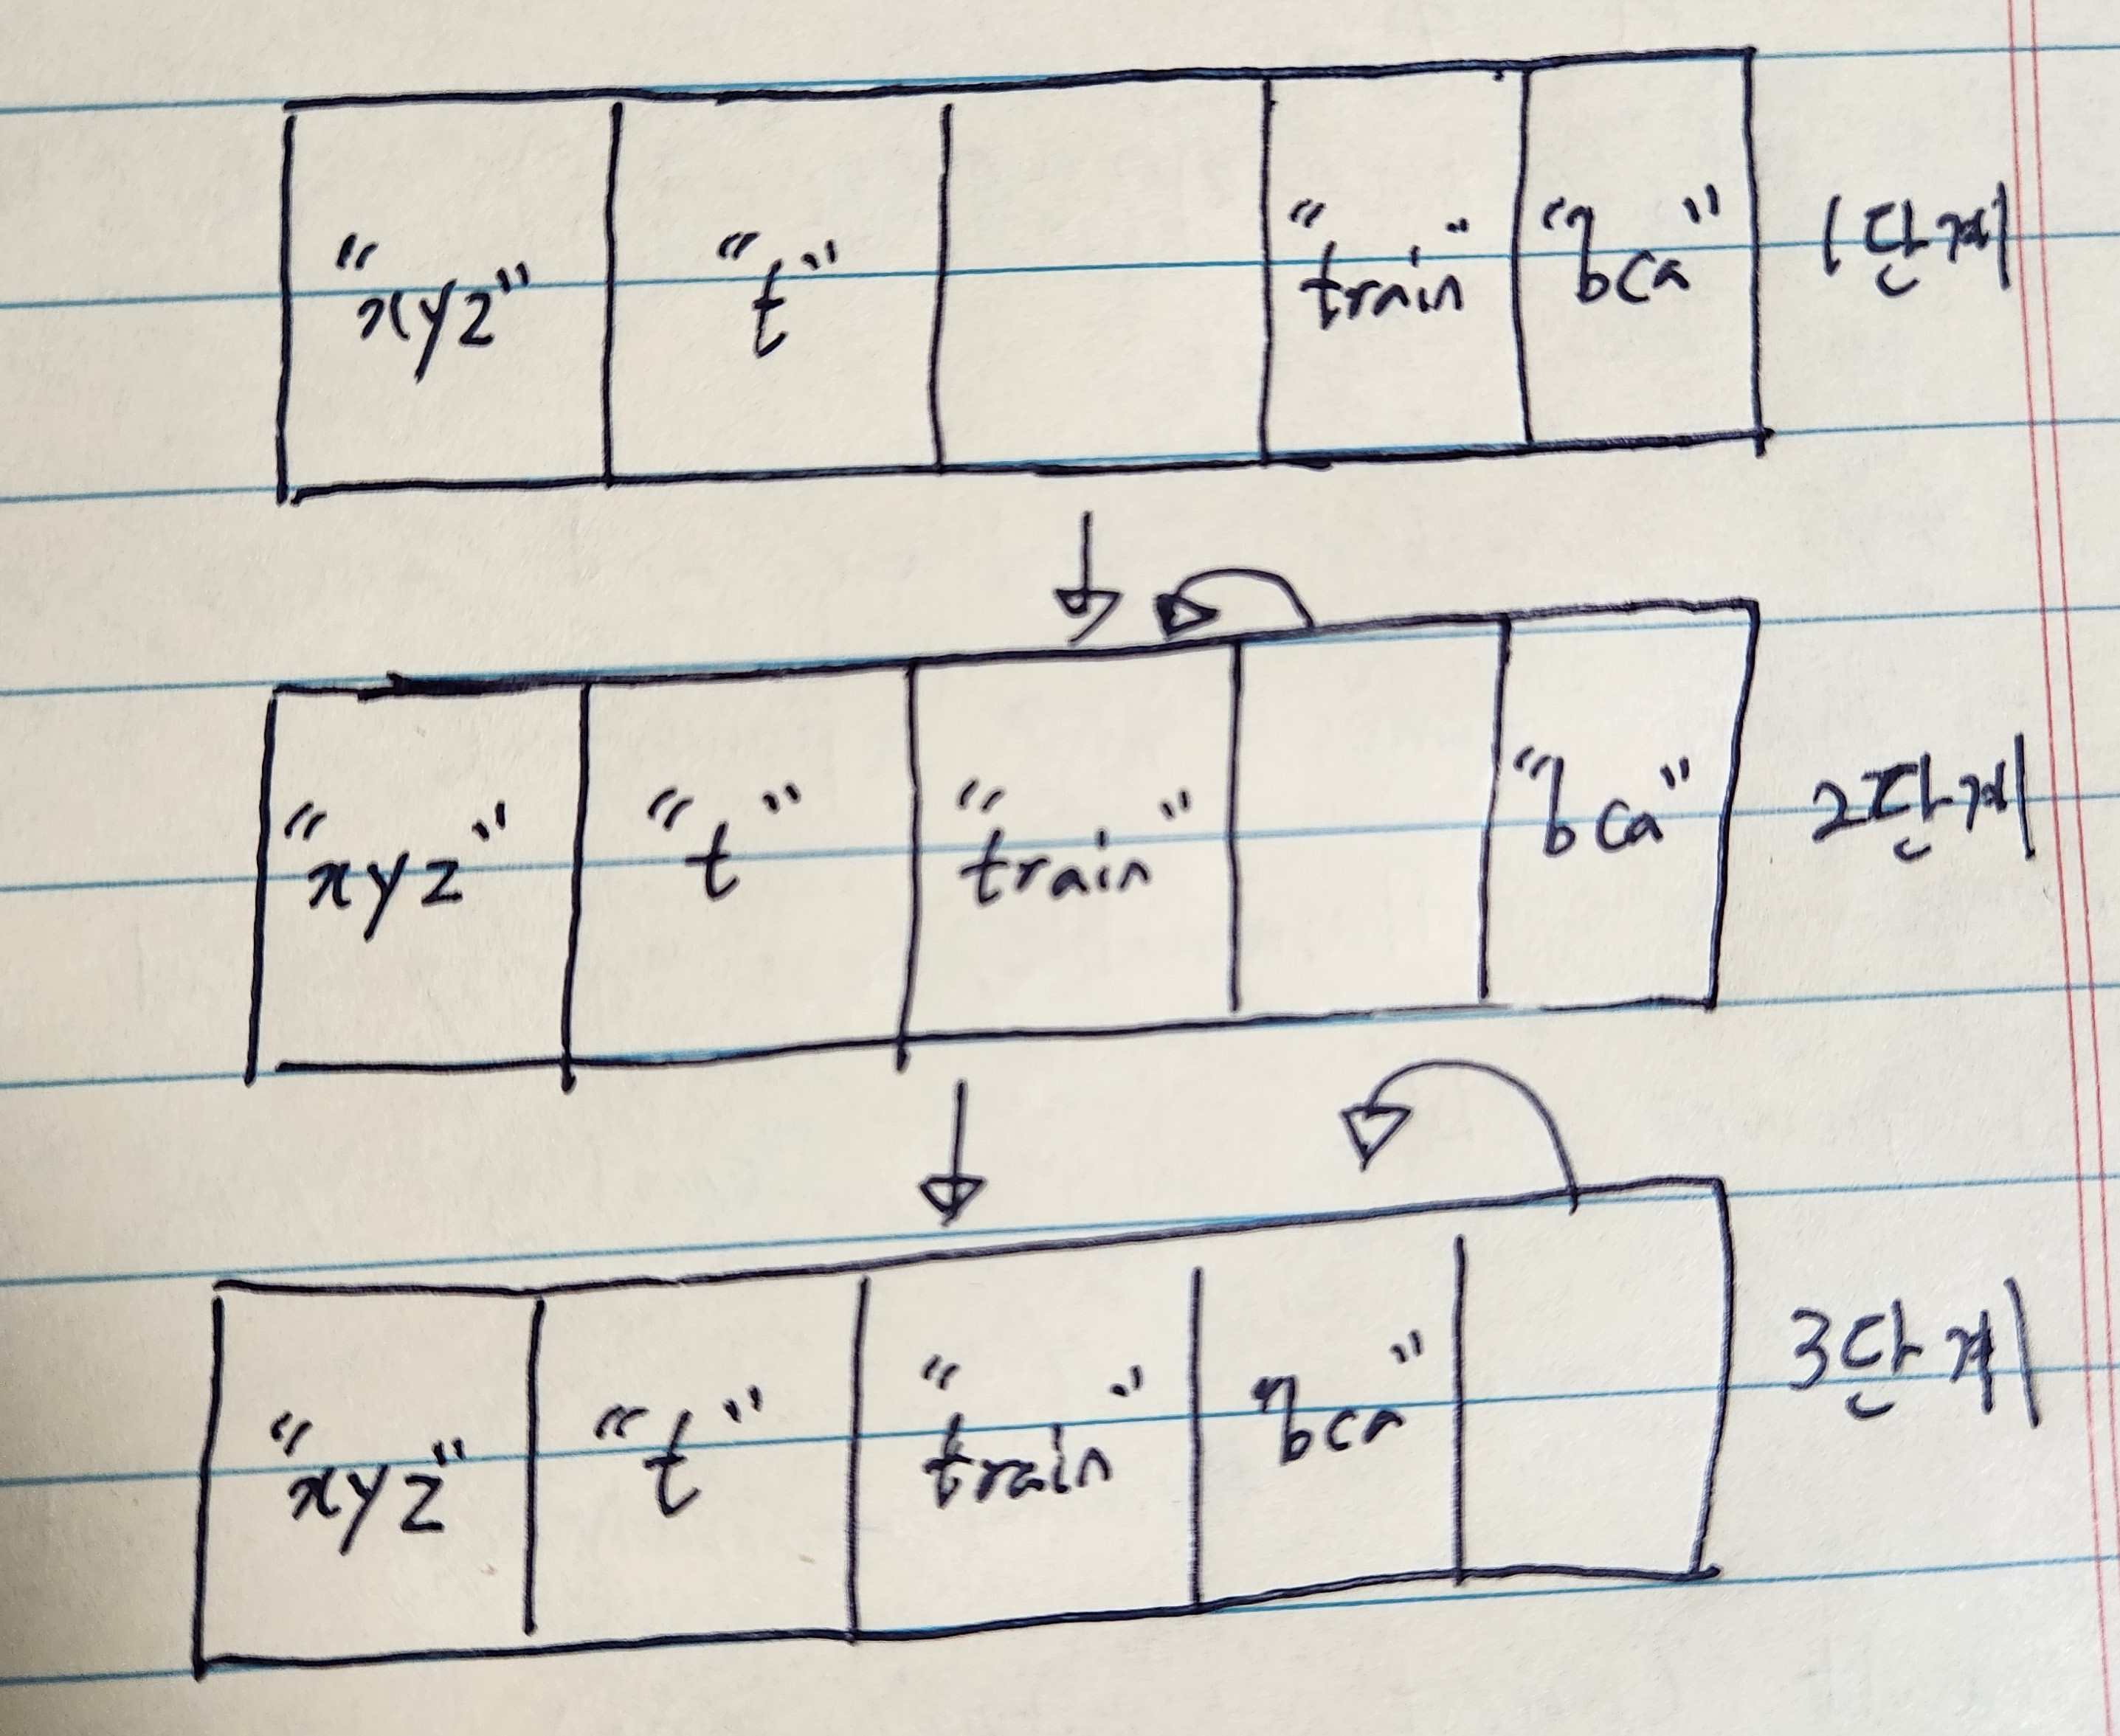 "xyz" "t" "train" "bca" 1단계
"xyz" "t" "train" "bca" 2단계
"xyz" "t" "train" "bca" 3단계